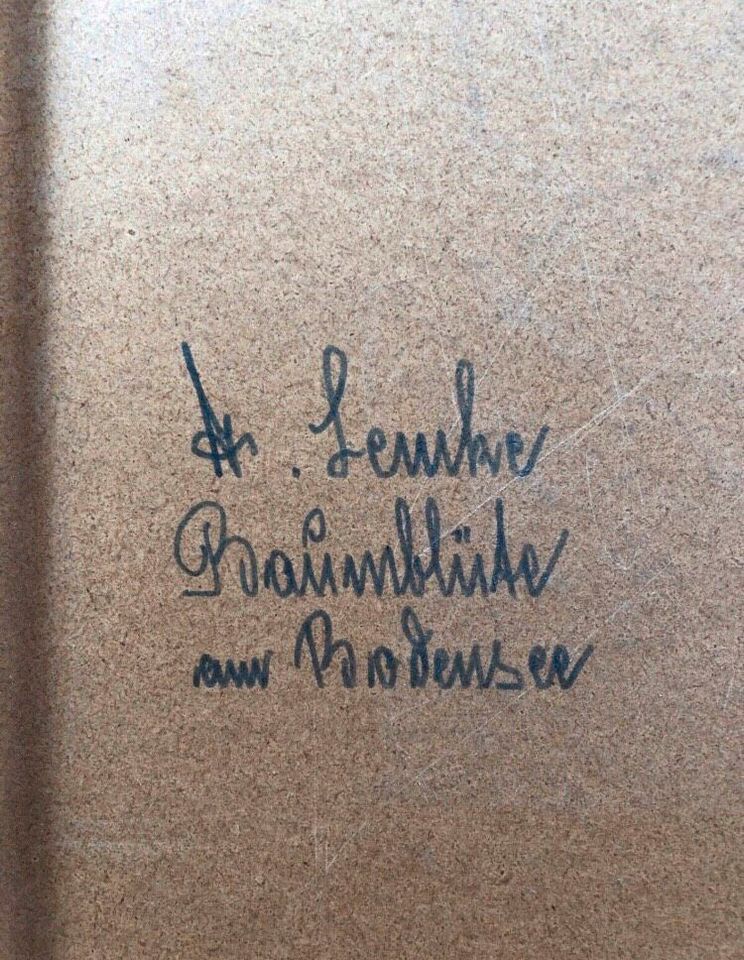 A. Lemke
Baumblüte
am Bodensee